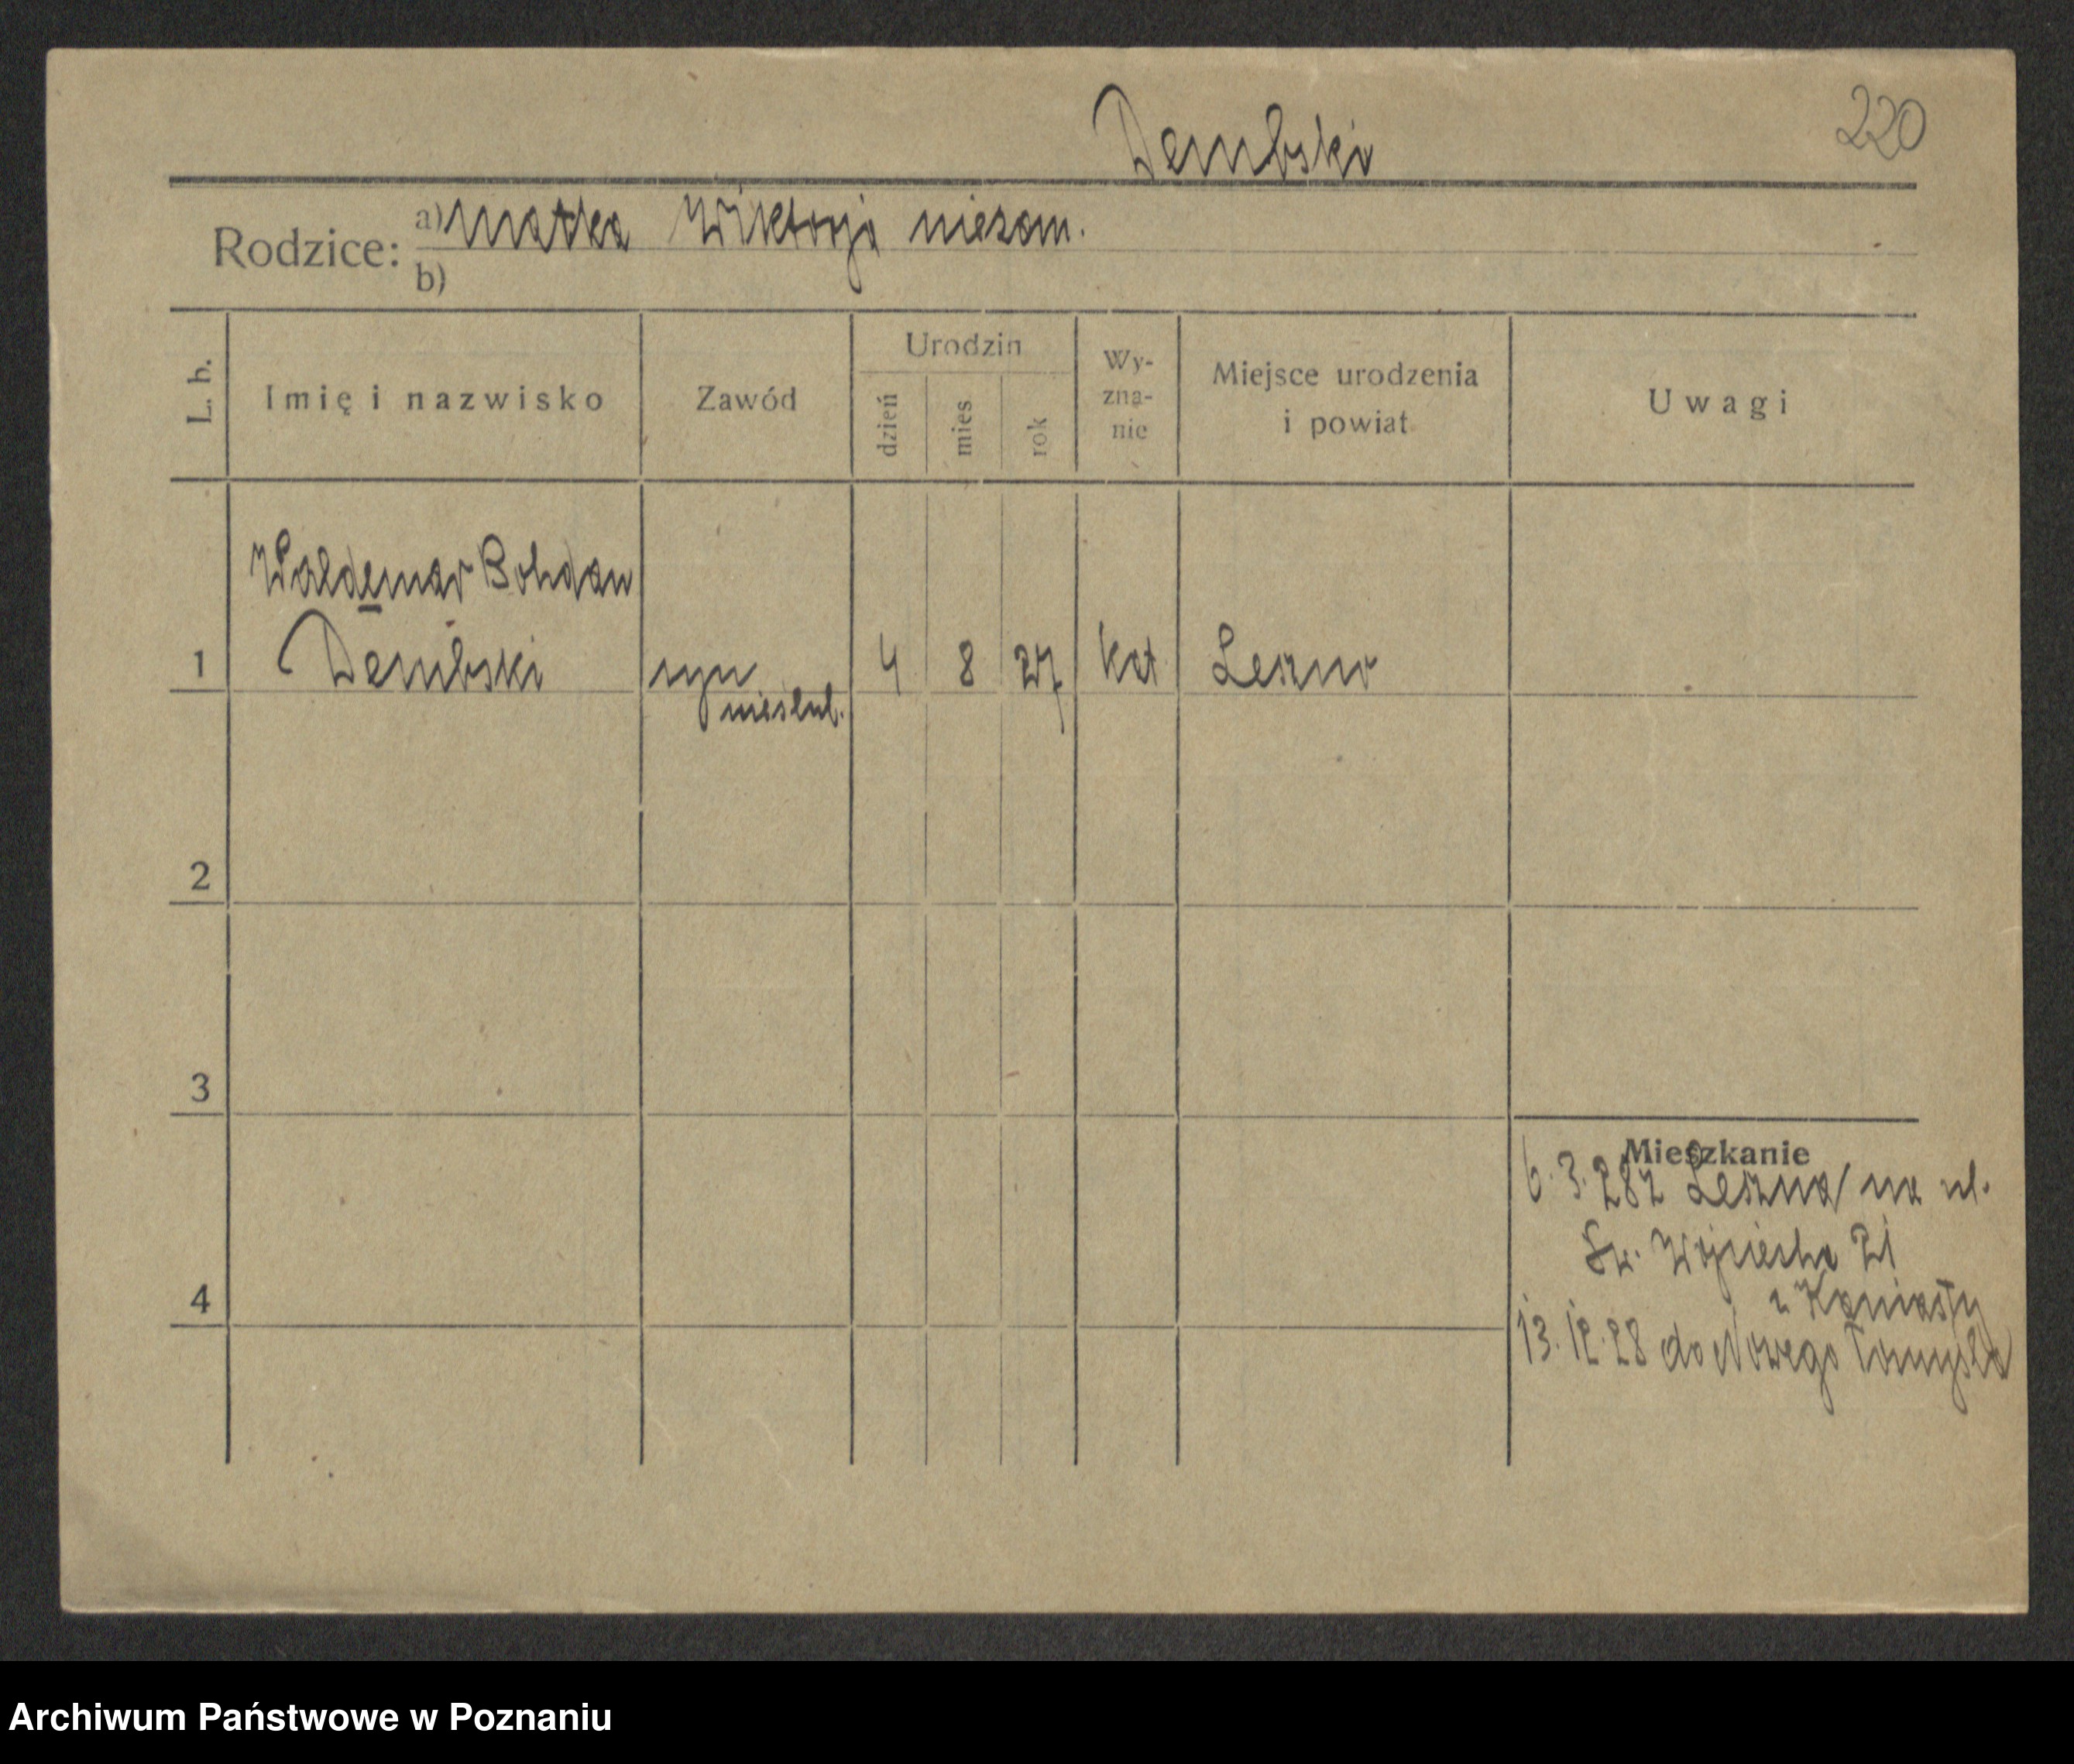 220
Dembski
Rodzice: a) matka Wiktorja niezam.
b)
L. b.
Imię i nazwisko
Zawód
Urodzin
dzień
mies
rok
Wy-
zna-
nie
Miejsce urodzenia
i powiat
Uwagi
Waldemar Bohdan
1 Dembski syn 4 8 27 kat Leszno
nieślub.
2
3
4
Mieszkanie
6.3.28 z Leszna na ul.
Św. Wojciecha 21
13.12.28 do Nowego Tomyśla
Archiwum Państwowe w Poznaniu